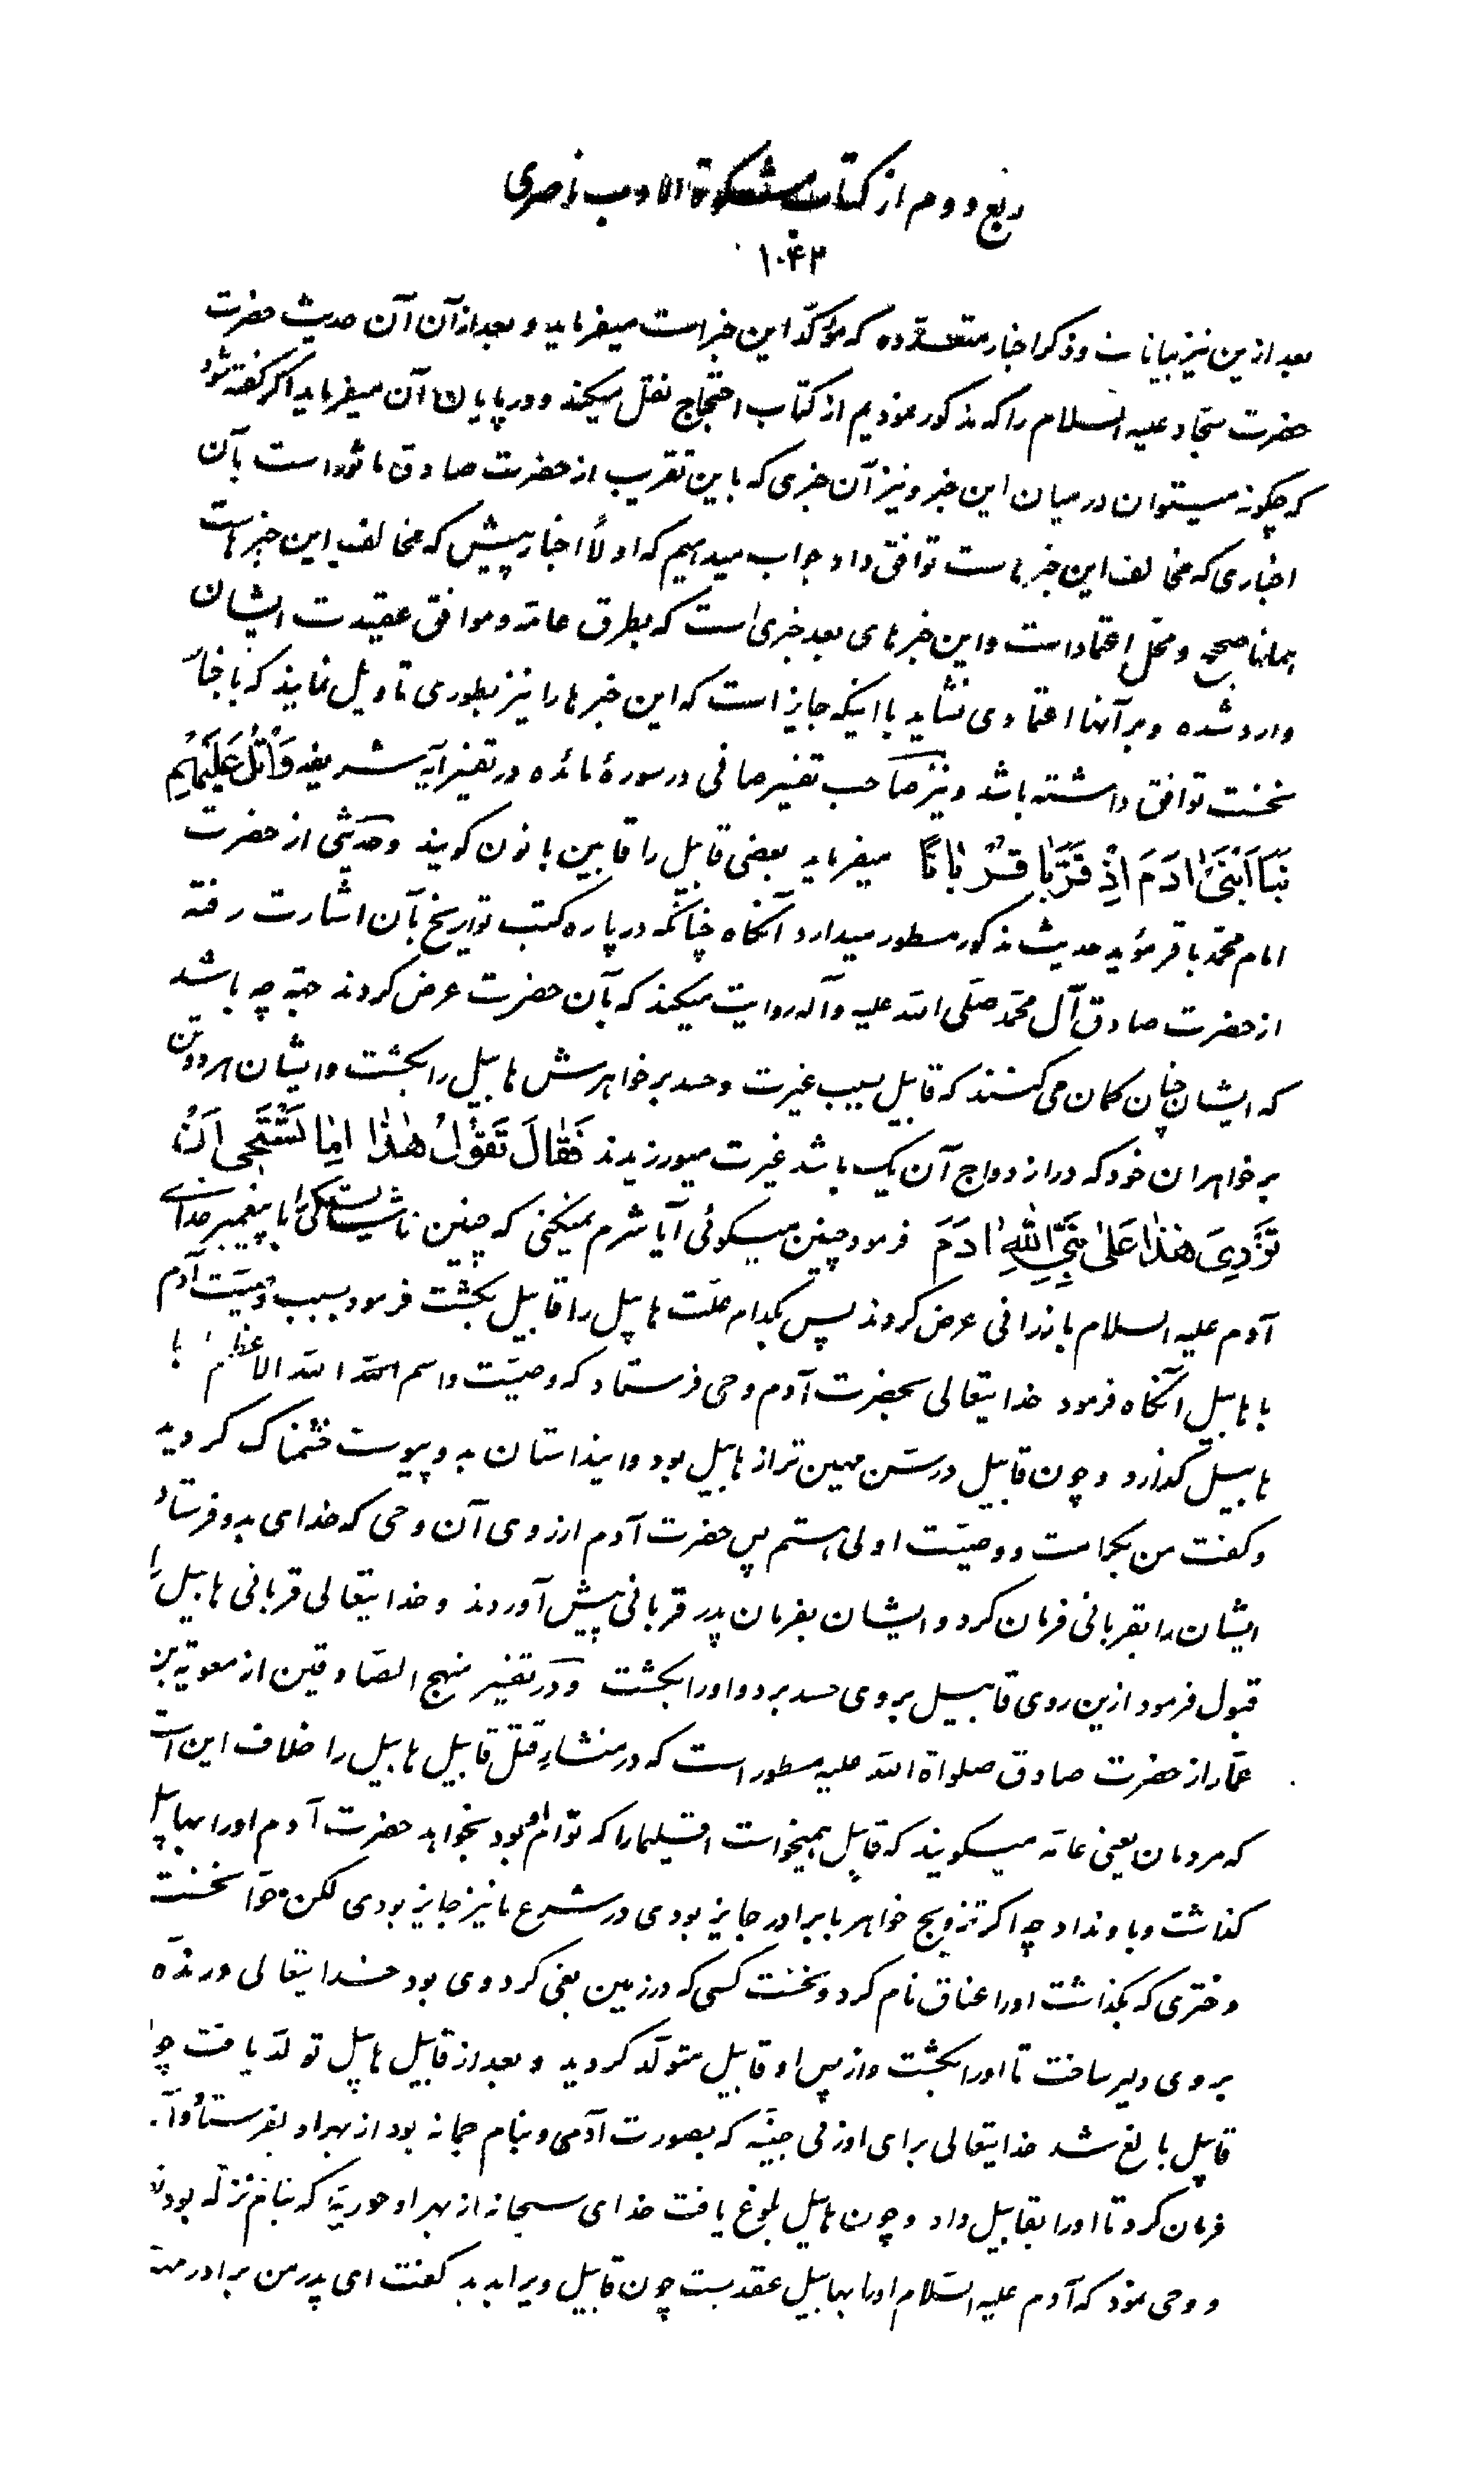 ربع دوم از کتاب مشکوة الادب ناصری
۱۰۴۳
بعد ازین نیز بیانات و ذکر اخبار متعدّده که مؤکّد این خبر است میفرماید و بعد از آن آن حدیث حضرت
حضرت سجّاد علیه السلام را که مذکور نمودیم از کتاب احتجاج نقل میکند و در پایان آن میفرماید اگر گفته شود
که چگونه میتوان در میان این خبر و نیز آن خبری که باین تقریب از حضرت صادق ماثور است بآن
اخباری که مخالف این خبرهاست توافق داد جواب میدهیم که اولاً اخبار پیش که مخالف این خبرهاست
همانا صحیح و محل اعتماد است و این خبرهای بعد خبری است که بطرق عامّه و موافق عقیدت ایشان
وارد شده و بر آنها اعتمادی نشاید با اینکه جایز است که این خبرها را نیز بطوری تاویل نمایند که باخبار
نخست توافق داشته باشد و نیز صاحب تفسیر صافی در سورۀ مائده در تفسیر آیه شریفه وَاتْلُ عَلَیْهِمْ
نَبَأَ ابْنَیْ ادَمَ اِذْ قَرَّبا قُرْبانًا میفرماید بعضی قابیل را قابین با نون گویند و حدیثی از حضرت
امام محمّد باقر مؤید حدیث مذکور مسطور میدارد آنگاه چنانکه در پاره کتب تواریخ بآن اشارت رفته
از حضرت صادق آل محمّد صلّی الله علیه و آله روایت میکند که بآن حضرت عرض کردند جهة چه باشد
که ایشان چنان گمان می‌کنند که قابیل بسبب غیرت و حسد بر خواهرش هابیل را بکشت و ایشان هر دو تن
بر خواهران خود که در ازدواج آن یک باشد غیرت میورزیدند فَقالَ تَقُولُ هٰذا اَما تَسْتَحْیی اَنْ
تَرْوِیَ هٰذا عَلیٰ نَبِیِّ اللهِ ادَمَ فرمود چنین میگوئی آیا شرم نمیکنی که چنین ناشایستگی را با پیغمبر خدای
آدم علیه السلام بازرانی عرض کردند پس بکدام علّت هابیل را قابیل بکشت فرمود بسبب وصیّت آدم
با هابیل آنگاه فرمود خدایتعالی بحضرت آدم وحی فرستاد که وصیّت و اسم الله الاعظم را با
هابیل گذارد و چون قابیل در سن مهین تر از هابیل بود و اینداستان بدو پیوست خشمناک گردید
و گفت من بکرامت و وصیّت اولی هستم پس حضرت آدم از روی آن وحی که خدای بدو فرستاد
ایشان را بقربانی فرمان کرد و ایشان بفرمان پدر قربانی پیش آوردند و خدایتعالی قربانی هابیل را
قبول فرمود ازین روی قابیل بر وی حسد برد و او را بکشت و در تفسیر منهج الصّادقین از معویة بن
عمّار از حضرت صادق صلواة الله علیه مسطور است که در منشاء قتل قابیل هابیل را خلاف این است
که مردمان یعنی عامّه میگویند که قابیل همیخواست اقلیما را که توام او بود بخواهد حضرت آدم او را بهابیل
گذاشت و باو نداد چه اگر تزویج خواهر با برادر جایز بودی در شرع ما نیز جایز بودی لکن حوّا نخست
دختری که بگذاشت او را عناق نام کرد و نخست کسی که در زمین بغی کرد وی بود خدایتعالی درنده
بر وی دلیر ساخت تا او را بکشت و از پس او قابیل متولّد گردید و بعد از قابیل هابیل تولّد یافت چون
قابیل بالغ شد خدایتعالی برای او زنی جنیّه که بصورت آدمی و بنام جمانه بود از بهر او بفرستاد و آدم
فرمان کرد تا او را بقابیل داد و چون هابیل بلوغ یافت خدای سبحانه از بهر او حوریّه که بنام نزله بود
و وحی نمود که آدم علیه السّلام او را بهابیل عقد بست چون قابیل ویرا بدید گفت ای پدر من برادر مهتر